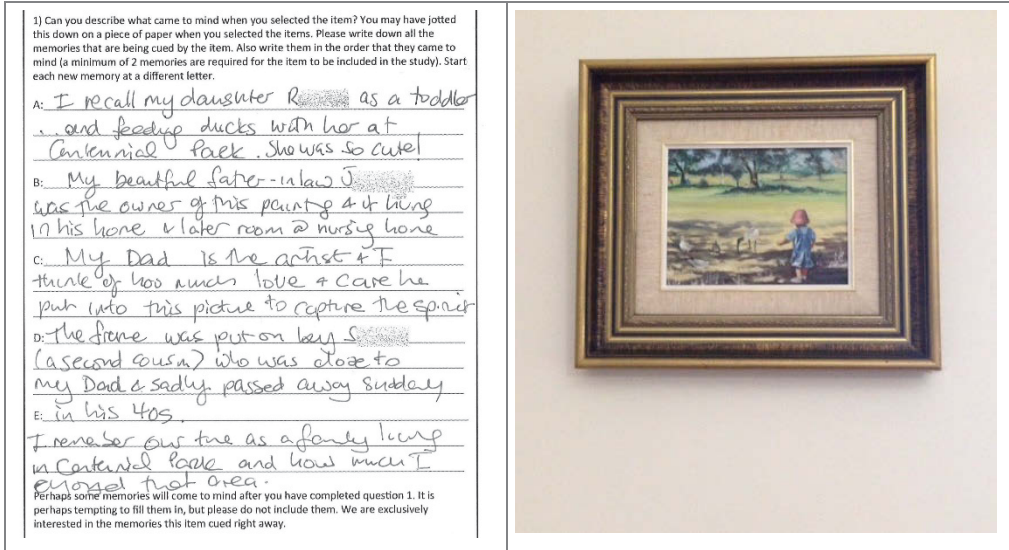 1) Can you describe what came to mind when you selected the item? You may have jotted
this down on a piece of paper when you selected the items. Please write down all the
memories that are being cued by the item. Also write them in the order that they came to
mind (a minimum of 2 memories are required for the item to be included in the study). Start
each new memory at a different letter.
A: I recall my daughter R as a toddler
... and feeding ducks with her at
Centennial Park. She was so cute!
B: My beautiful father-in law J
was the owner of this painting & it hung
in his home & later room @ nursing home
C: My Dad is the artist & I
think of how much love & care he
put into this picture to capture the spirit
D: The frame was put on by S
(a second cousin) who was close to
my Dad & sadly passed away suddenly
E: in his 40s.
I remember our time as a family living
in Centennial Park and how much I
enjoyed that area.
Perhaps some memories will come to mind after you have completed question 1. It is
perhaps tempting to fill them in, but please do not include them. We are exclusively
interested in the memories this item cued right away.